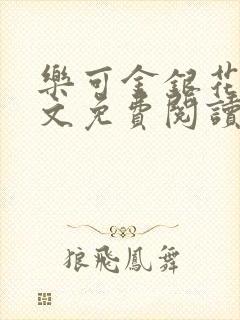 樂可金銀花
文免費閱讀
狼飛鳳舞